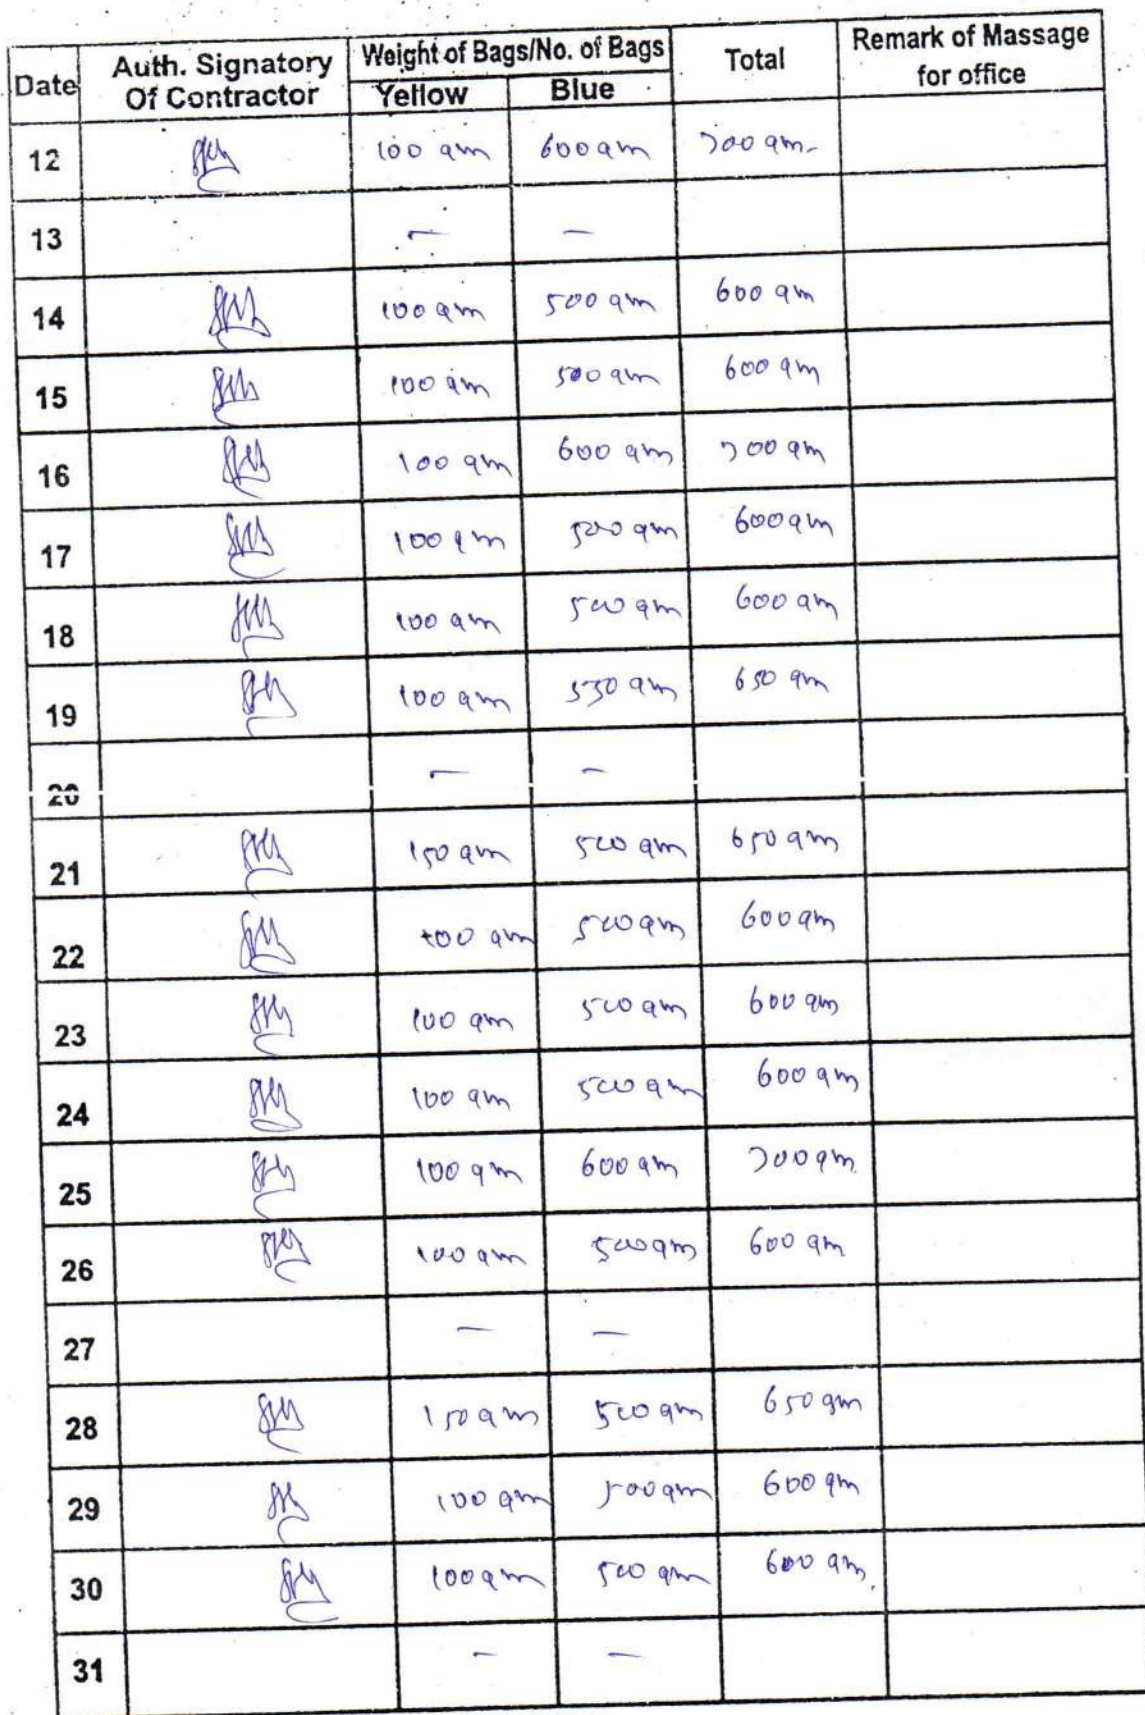 Date Auth. Signatory Of Contractor Weight of Bags/No. of Bags Yellow Blue Total Remark of Massage for office
12 100 gm 600 gm 700 gm
13 — —
14 100 gm 500 gm 600 gm
15 100 gm 500 gm 600 gm
16 100 gm 600 gm 700 gm
17 100 gm 500 gm 600 gm
18 100 gm 500 gm 600 gm
19 100 gm 550 gm 650 gm
20 — —
21 150 gm 500 gm 650 gm
22 100 gm 500 gm 600 gm
23 100 gm 500 gm 600 gm
24 100 gm 500 gm 600 gm
25 100 gm 600 gm 700 gm
26 100 gm 500 gm 600 gm
27 — —
28 150 gm 500 gm 650 gm
29 100 gm 500 gm 600 gm
30 100 gm 500 gm 600 gm
31 — —